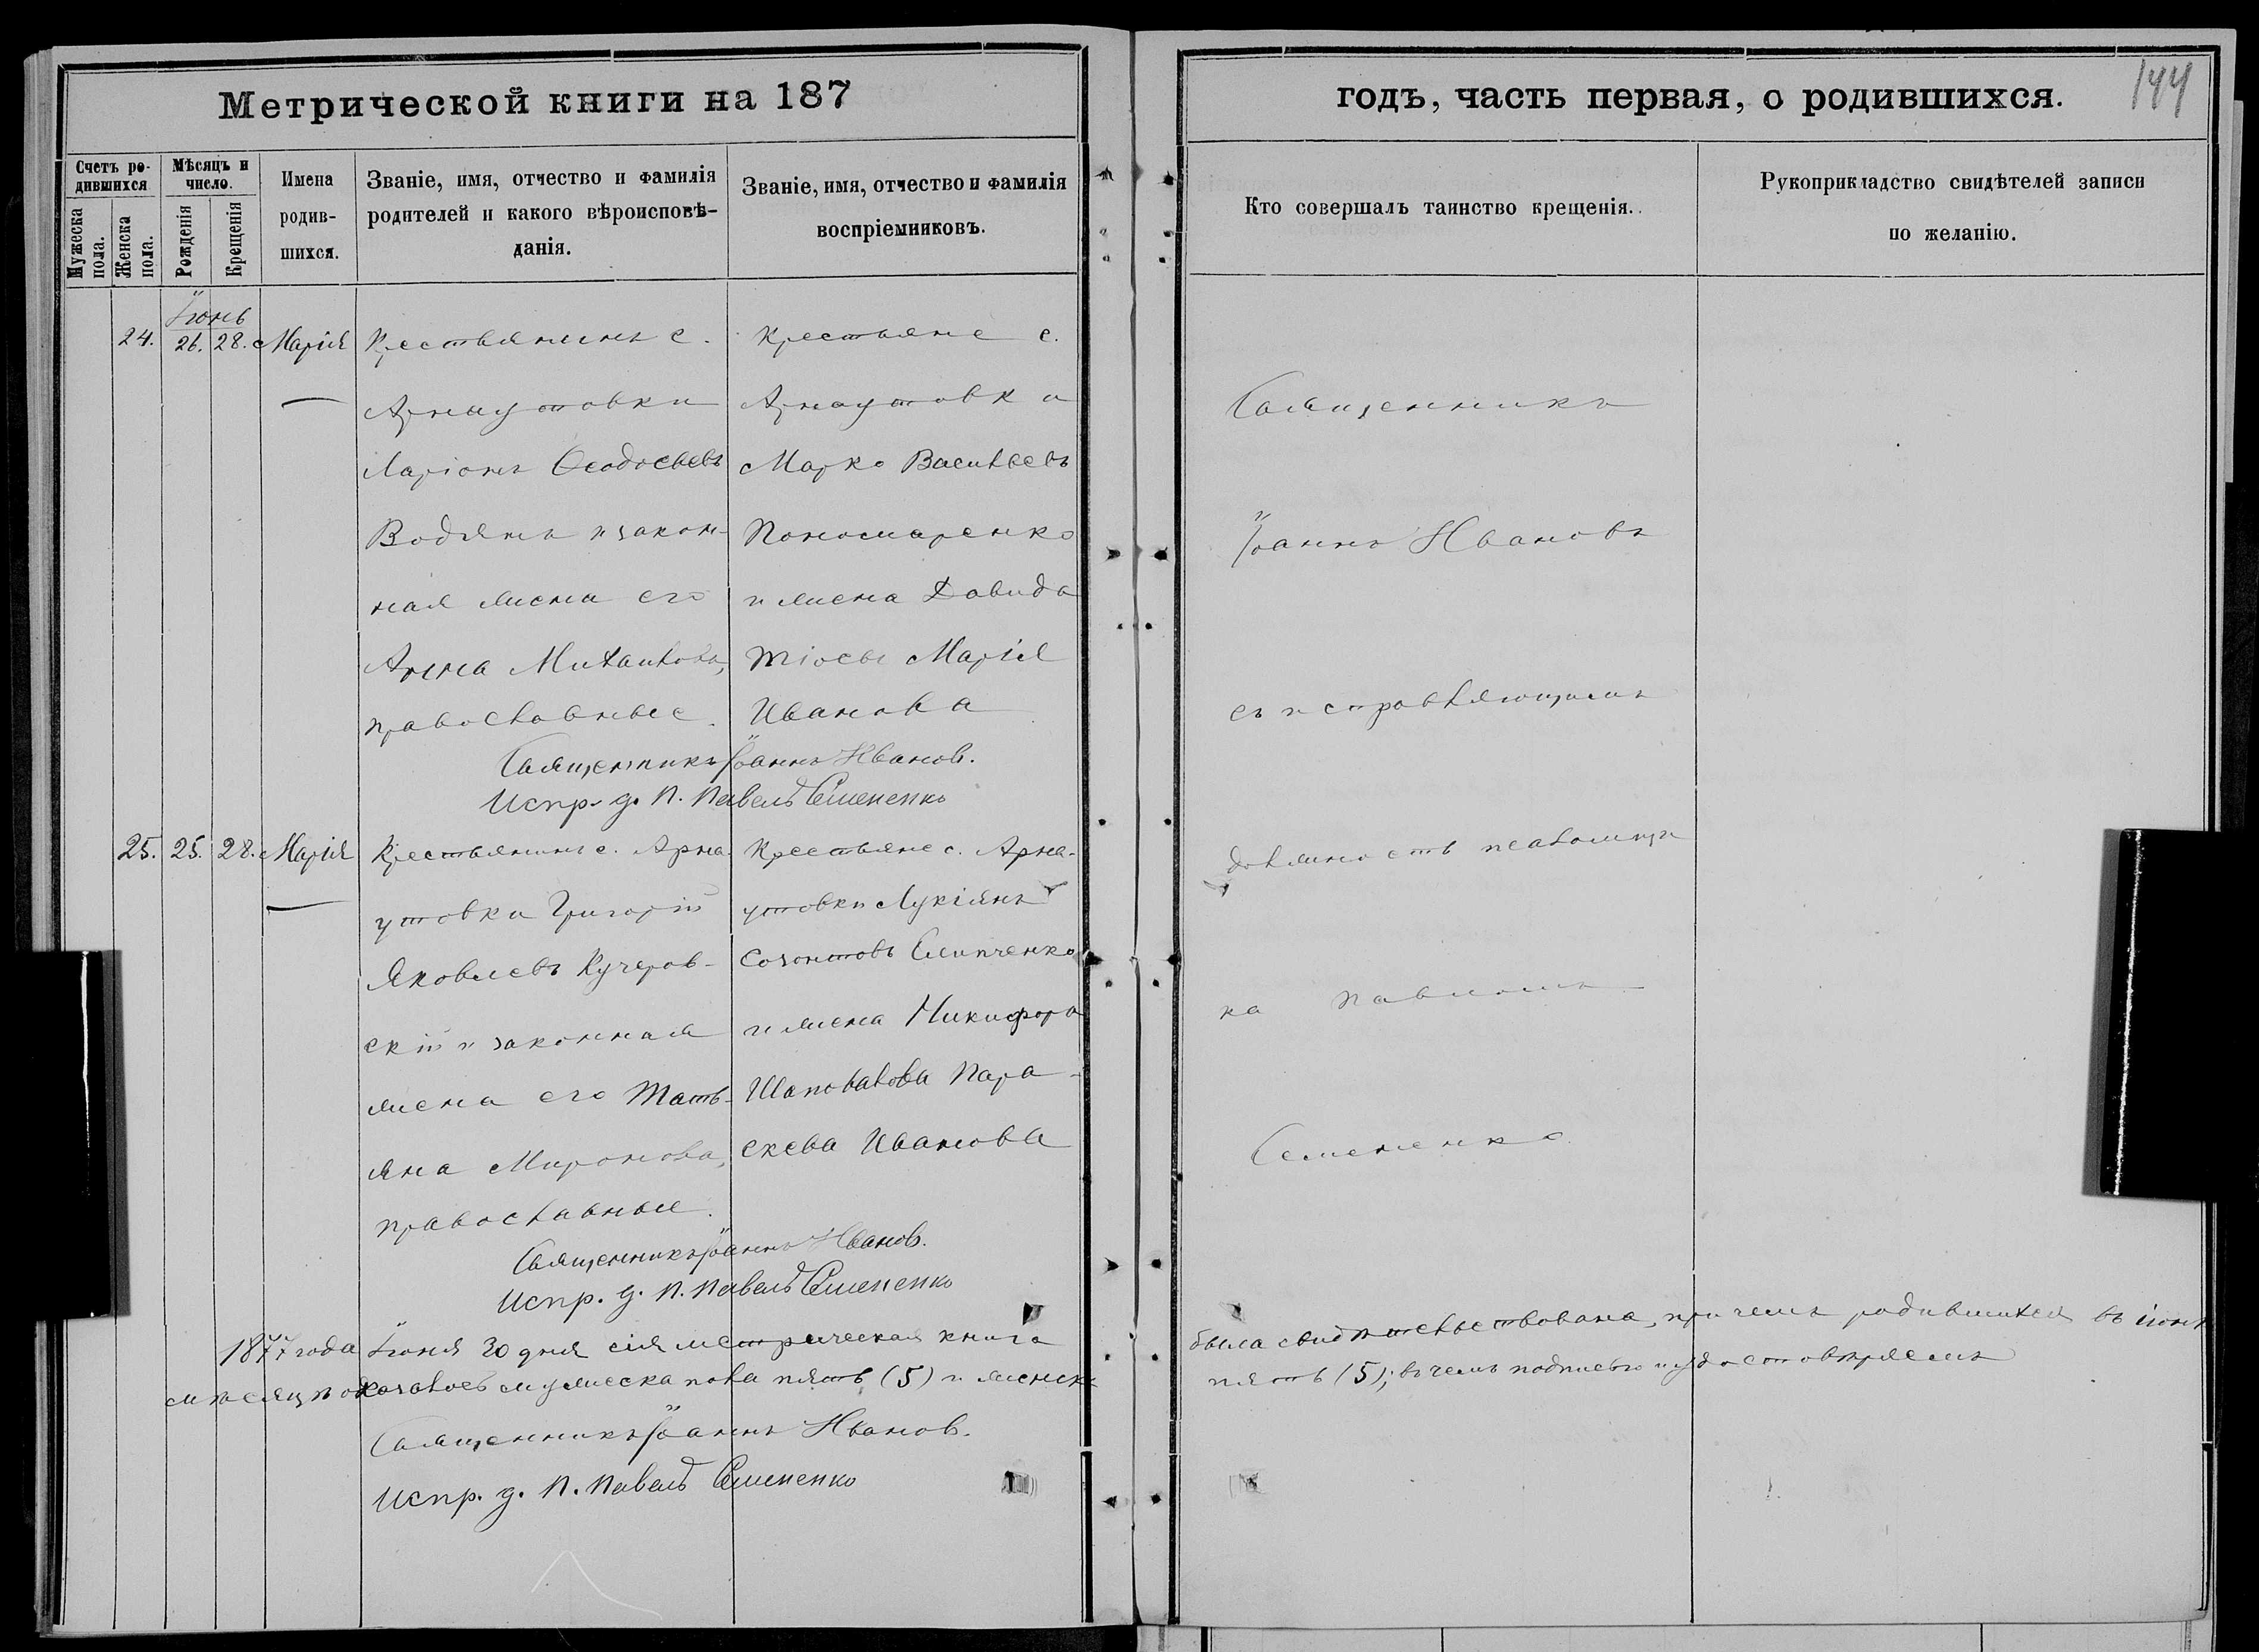 Метрической книги на 187
Счетъ ро-
дившихся
Мужеска
пола.
Женска
пола.
Мѣсяцъ и
число.
Рожденія
Крещенія
Имена
родив-
шихся.
Званіе, имя, отчество и фамилія
родителей и какого вѣроисповѣ-
данія.
Званіе, имя, отчество и фамилія
воспріемниковъ.
Іюнь
24. 26. 28. Марія
Крестьянинъ с.
Арнаутовки
Ларіонъ Ѳеодосьевъ
Водянъ и закон-
ная жена его
Анна Михайлова,
православные.
Крестьяне с.
Арнаутовки
Марко Васильевъ
Пономаренко
и жена Давида
Марія
Иванова
Священникъ Іоаннъ Ивановъ.
Испр. д. П. Павелъ Семененко
25. 25. 28. Марія
Крестьянинъ с. Арна
утовки Григорій
Яковлевъ Кучеров-
скій и законная
жена его Тать-
яна Миронова,
православные.
Крестьяне с. Арна-
утовки Лукіянъ
Созонтовъ Слипченко
и жена Никифора
Шаповалова Пара-
скева Иванова
Священникъ Іоаннъ Ивановъ.
Испр. д. П. Павелъ Семененко
1877 года Іюня 30 дня сія метрическая книга
мѣсяцѣ оказалось мужеска пола пять (5) и женска
Священникъ Іоаннъ Ивановъ.
Испр. д. П. Павелъ Семененко
годъ, часть первая, о родившихся.
144
Кто совершалъ таинство крещенія.
Рукоприкладство свидѣтелей записи
по желанію.
Священникъ
Іоаннъ Ивановъ
съ исправляющимъ
должность псаломщи
ка Павломъ
Семененко
была свидѣтельствована, при чемъ родившихся въ іюнѣ
пять (5); въ чемъ подписью и удостовѣряемъ